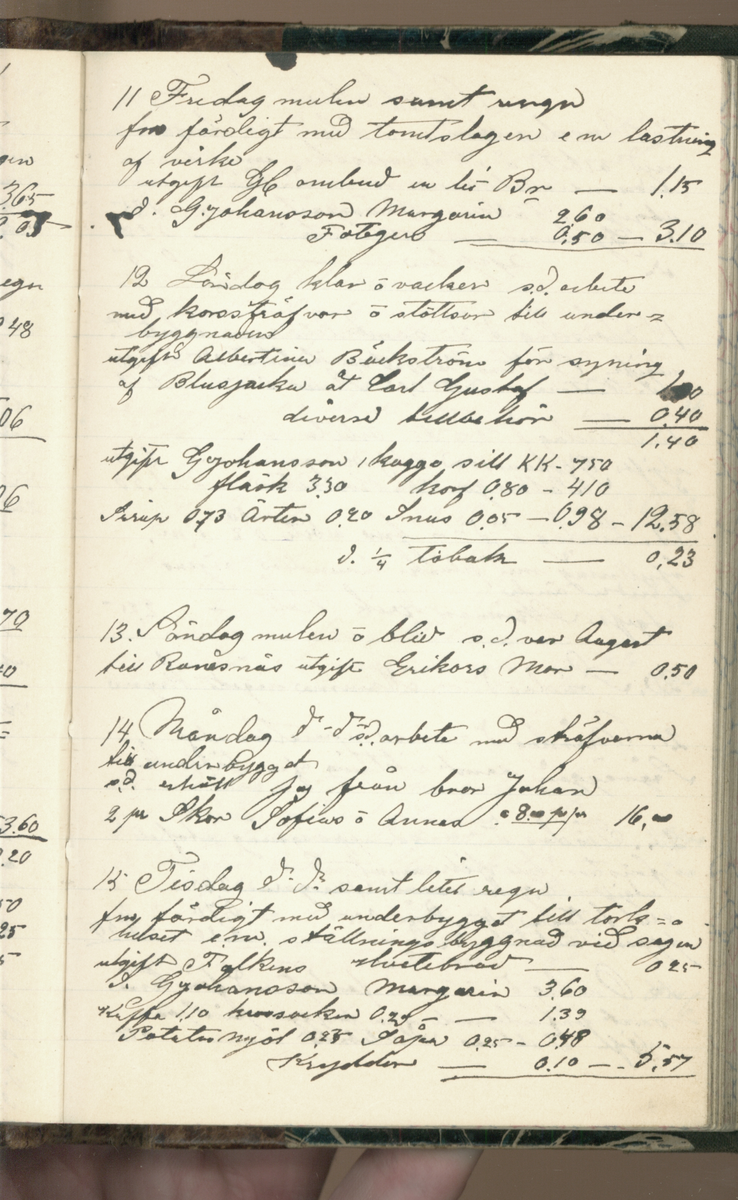 11 Fredag mulen samt regn
fm färdigt med tomtslagen e m lastning
af virke
utgift GH ombud en lit Br — 1.15
d. G Johansson Margarin 2.60
Fotogen — 0,50 — 3.10
12 Lördag klar o vacker s.d. arbete
med korssträfvor o stöttor till under=
byggnaden
utgift Albertina Bäckström för syning
af Blusjacka åt Carl Gustaf —
diverse tillbehör — 0.40
1.40
utgift G Johansson 1 kagge sill KK - 750
fläsk 3.30 korf 0.80 - 410
Sirap 073 Ärter 0.20 Snus 0.05 — 0.98 — 12.58
d. 1/4 tobak — 0,23
13. Söndag mulen o blid s.d. var August
till Rånäsnäs utgift Erikors Mor — 0.50
14 Måndag d- d- s.d. arbete med sträfvorna
till underbygget
s.d. erhöll jag från bror Johan
2 pr Skor Sofias o Annas 8.00 p/pr 16,00
15 Tisdag d. d. samt litet regn
fm färdigt med underbygget till tork=
huset e m. ställningsbyggnad vid sågen
utgift Falkens Hvetebröd — 025
d. G Johansson Margarin 3.60
Kaffe 1.10 krossocker 0.29 — 1.39
Potatismjöl 0.23 Såpa 0.25 - 0.48
Kryddor — 0.10 — 5,57
3.65
48
06
70
3.60
.20
50
25